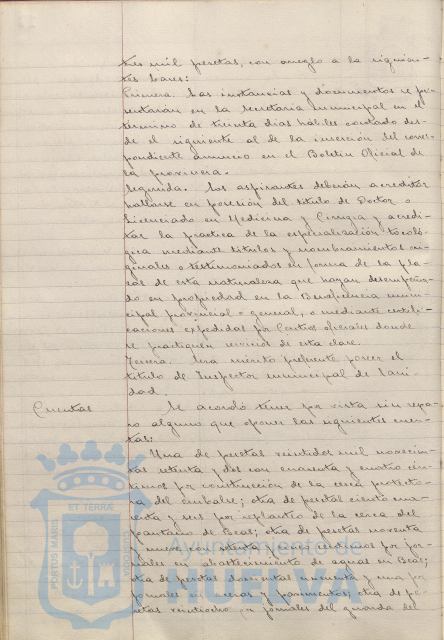 tres mil pesetas, con arreglo a la siguien-
tes bases:
Primera. Las instancias y documentos se pre-
sentarán en la Secretaría Municipal en el
término de treinta días hábiles contado des-
de el siguiente al de la inserción del corres-
pondiente anuncio en el Boletín Oficial de
la provincia.
Segunda. Los aspirantes deberán acreditar
hallarse en posesión del título de Doctor o
Licenciado en Medicina y Cirugía y acredi-
tar la práctica de la especialización tocoló-
gica mediante títulos y nombramientos ori-
ginales o testimoniados en forma de las pla-
zas de esta naturaleza que hayan desempeña-
do en propiedad en la Beneficencia muni-
cipal provincial o general, o mediante certifi-
caciones expedidas por Centros oficiales donde
se practiquen servicios de esta clase.
Tercera. Será mérito preferente poseer el
título de Inspector municipal de Sani-
dad.
Cuentas
Se acordó tener por vista sin repa-
ro alguno que oponer las siguientes cuen-
tas:
Una de pesetas veintidos mil novecien-
tas setenta y dos con cuarenta y cuatro cén-
timos por construcción de la cerca protecto-
ra del embalse; otra de pesetas ciento cua-
renta y seis por replanteo de la cerca del
pantano de Beas; otra de pesetas noventa
y nueve con setenta y cinco céntimos por jor-
nales en abastecimiento de aguas en Beas;
otra de pesetas doscientas noventa y una por
jornales en aceras y pavimentos; otra de pe-
setas veintiocho en jornales del guarda del
PORTUS MARIS
ET TERRÆ
CUSTODIA
Ayuntamiento de
HUELVA